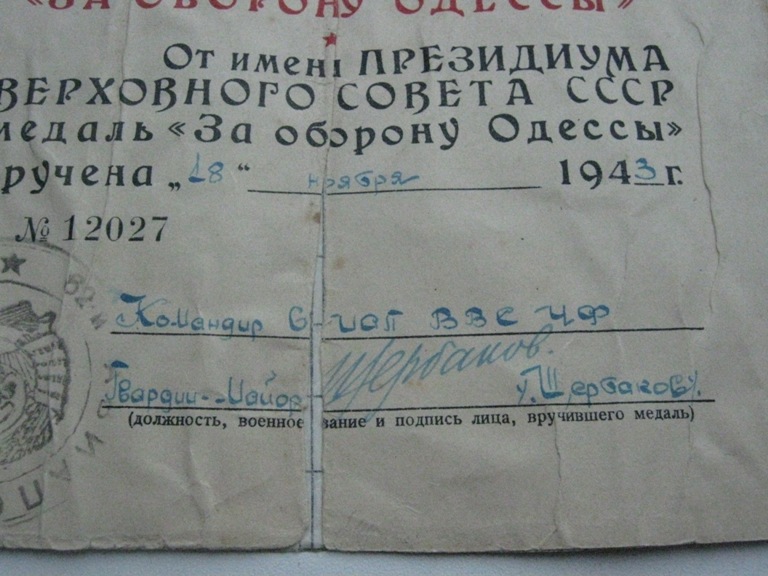 «ЗА ОБОРОНУ ОДЕССЫ»
От имени ПРЕЗИДИУМА
ВЕРХОВНОГО СОВЕТА СССР
медаль «За оборону Одессы»
вручена „18“ ноября 1943 г.
№ 12027
Командир 6 иап ВВС ЧФ
Гвардии-майор Щербаков. /Щербаков/.
(должность, военное звание и подпись лица, вручившего медаль)